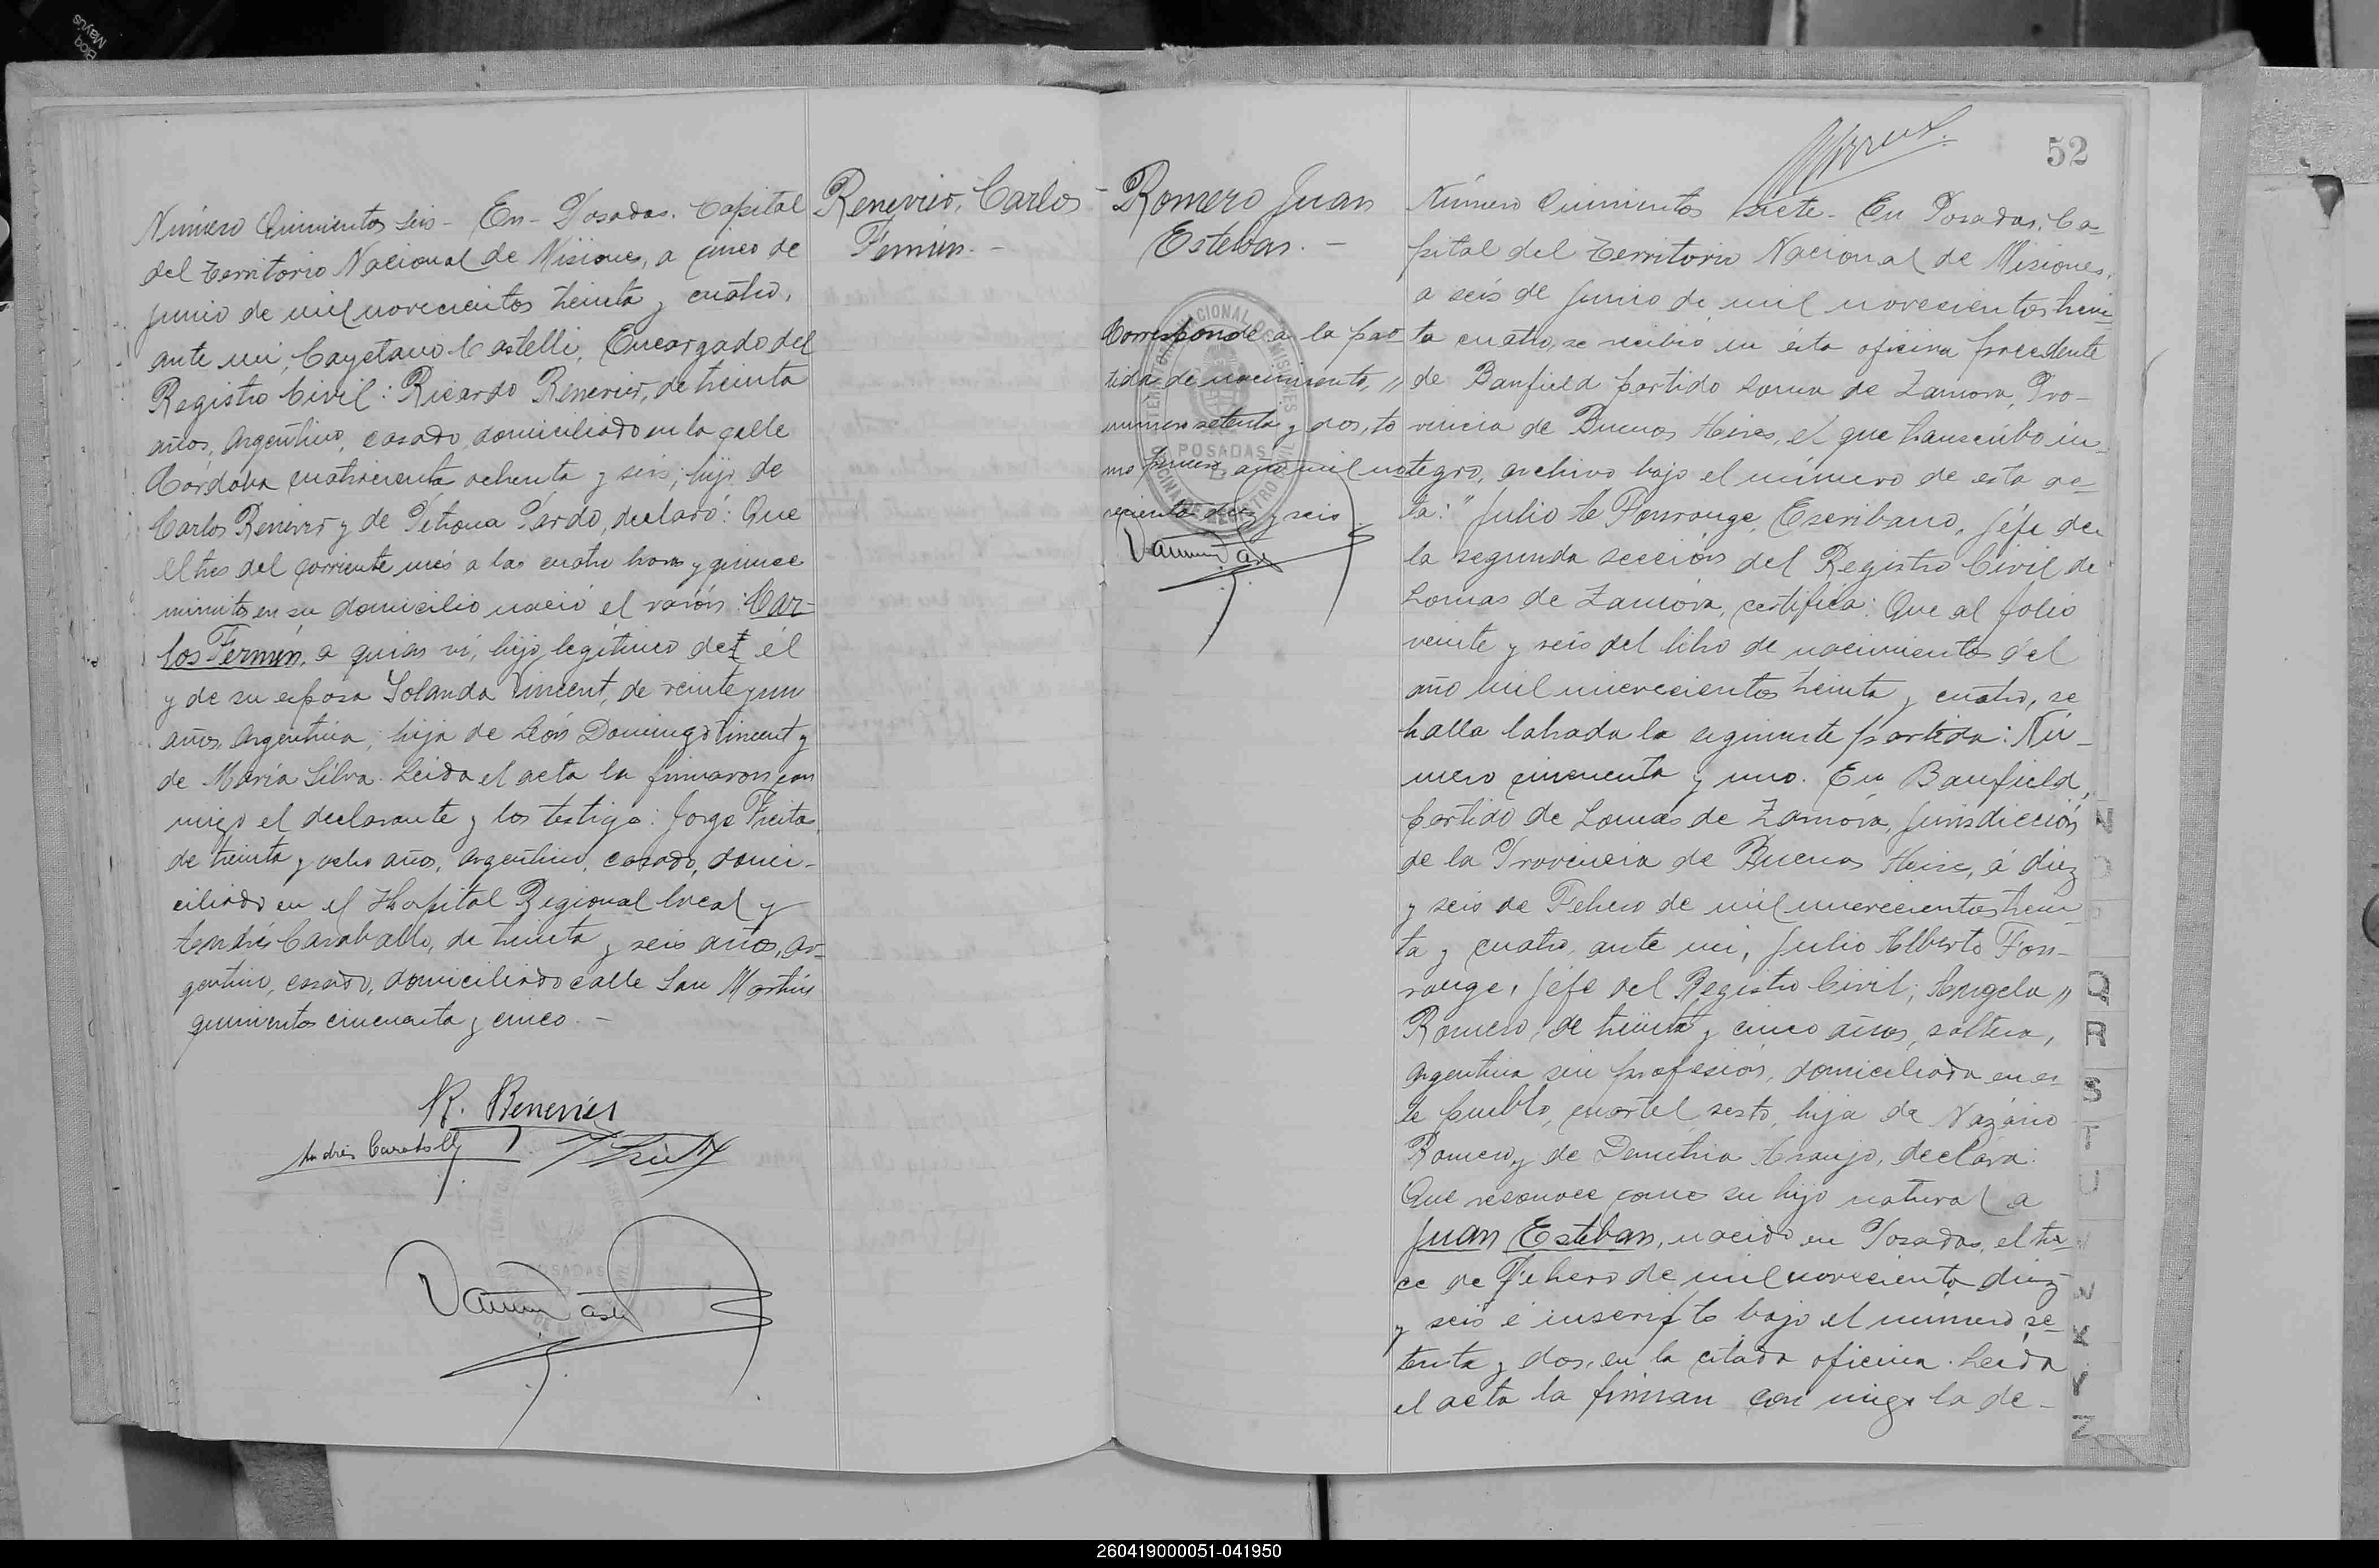 Número Quinientos seis - En - Posadas. Capital
del Territorio Nacional de Misiones, a cinco de
junio de mil novecientos treinta y cuatro,
ante mi, Cayetano Castelli, Encargado del
Registro Civil: Ricardo Renevier, de treinta
años, Argentino, casado, domiciliado en la calle
Córdoba cuatrocienta ochenta y seis; hijo de
Carlos Renevier y de Petrona Pardo, declaró: Que
el tres del corriente més a las cuatro horas y quince
minutos en su domicilio nació el varón: Car-
los Fermín, a quien ví, hijo legítimo de él
y de su esposa Yolanda Vincent, de veinte y un
años, Argentina, hija de León Domingo Vincent y
de María Silva. Leida el acta la firmaron con
migo el declarante y los testigos: Jorge Freitas,
de treinta y ocho años, Argentino, casado, domi-
ciliado en el Hospital Regional local y
Andrés Caraballo, de treinta y seis años, Ar-
gentino, casado, domiciliado calle San Martín
quinientos cincuenta y cinco. -
R. Renevier
Andrés Caraballo
Renevier, Carlos
Fermín. -
Romero Juan
Esteban. -
Corresponde a la par
tida de nacimiento, "
número setenta y dos, to
mo primero, año mil no
vecientos diez y seis
POSADAS
52
Número Quinientos siete - En Posadas, Ca-
pital del Territorio Nacional de Misiones,
a seis de junio de mil novecientos trein-
ta cuatro, se recibió en ésta oficina procedente
de Banfield partido Loma de Zamora, Pro-
vincia de Buenos Aires, el que transcribo ín-
tegro, archivo bajo el número de esta ac-
ta: "Julio A Fonrouge, Escribano, Jéfe de
la segunda sección del Registro Civil de
Lomas de Zamora, certifica: Que al folio
veinte y seis del libro de nacimientos del
año mil nuevecientos treinta y cuatro, se
halla labrada la siguiente partida: Nú-
mero cincuenta y uno. En Banfield,
partido de Lomas de Zamora, jurisdicción
de la Provincia de Buenos Aires, á diez
y seis de Febrero de mil nuevecientos trein
ta y cuatro, ante mi, Julio Alberto Fon-
rouge, Jéfe del Registro Civil; Angela "
Romero, de treinta y cinco años, soltera,
Argentina sin profesión, domiciliada en es
te pueblo, cuartel sesto, hija de Nazario
Romero y de Demetria Araujo, declara:
Que reconoce como su hijo natural a
Juan Esteban, nacido en Posadas, el tre-
ce de Febrero de mil novecientos diez
y seis é inscripto bajo el número se-
tenta y dos, en la citada oficina. Leída
el acta la firman con migo la de-
N
Q
R
S
T
U
X
Y
Z
260419000051-041950